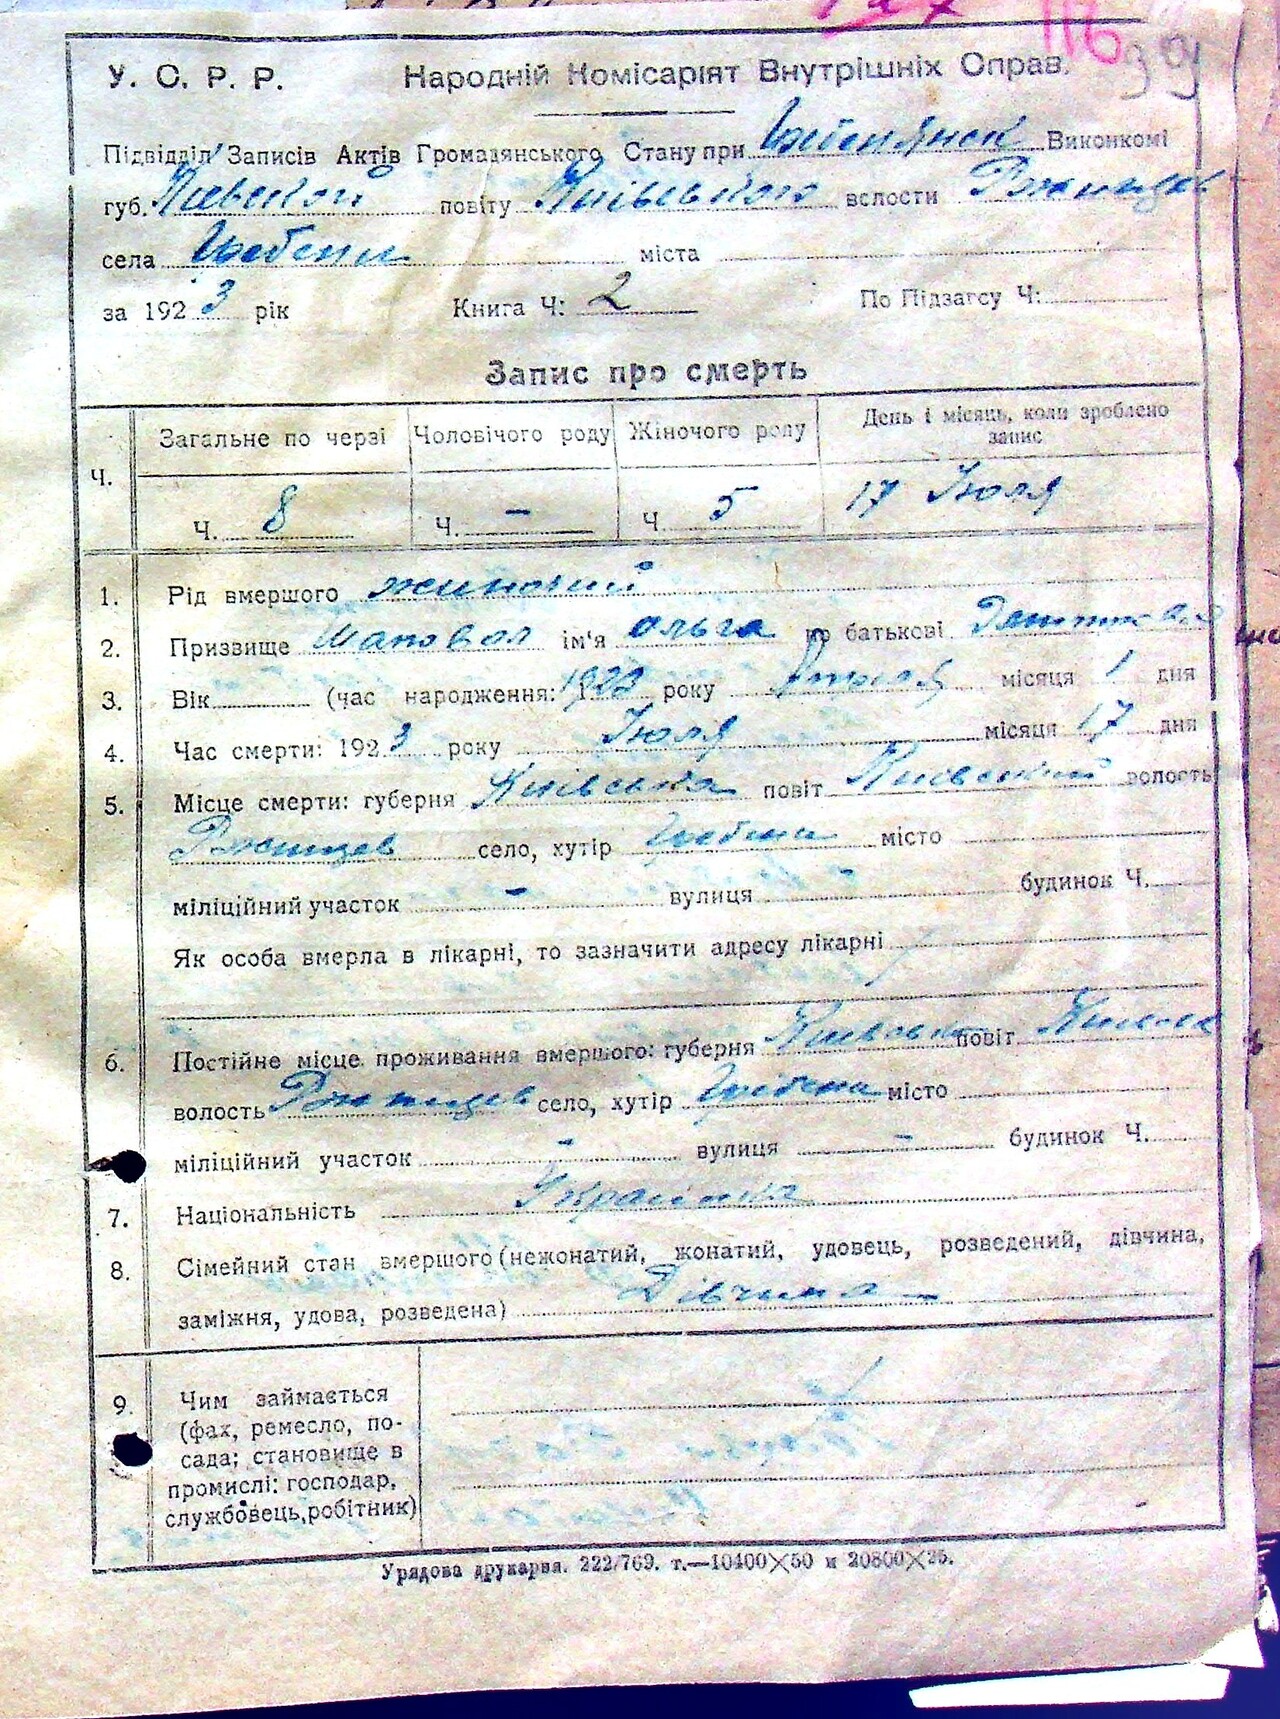 116
39
У. С. Р. Р. Народній Комісаріят Внутрішніх Справ.
Підвідділ Записів Актів Громадянського Стану при Виконкомі
губ. Киевской повіту Київського вслости Ржищев
села Гребени міста
за 1923 рік Книга Ч: 2 По Підзагсу Ч:
Запис про смерть
Ч. Загальне по черзі Чоловічого роду Жіночого роду День і місяць, коли зроблено запис
Ч. 8 Ч. - Ч 5 17 Июля
1. Рід вмершого жиночий
2. Призвище Шаповал ім'я Ольга по батькові
3. Вік (час народження: 1923 року місяця 1 дня
4. Час смерти: 1923 року Июля місяця 17 дня
5. Місце смерти: губерня Київська повіт Киевский волость
Ржищев село, хутір Гребени місто
міліційний участок - вулиця - будинок Ч.
Як особа вмерла в лікарні, то зазначити адресу лікарні
6. Постійне місце проживання вмершого: губерня повіт
волость Ржищев село, хутір Гребени місто
міліційний участок - вулиця - будинок Ч.
7. Національність Украинка
8. Сімейний стан вмершого (нежонатий, жонатий, удовець, розведений, дівчина,
заміжня, удова, розведена) Дівчина
9. Чим займається
(фах, ремесло, по-
сада; становище в
промислі: господар,
службовець, робітник)
Урядова друкарня. 222/769. т.—10400×50 и 20800×25.